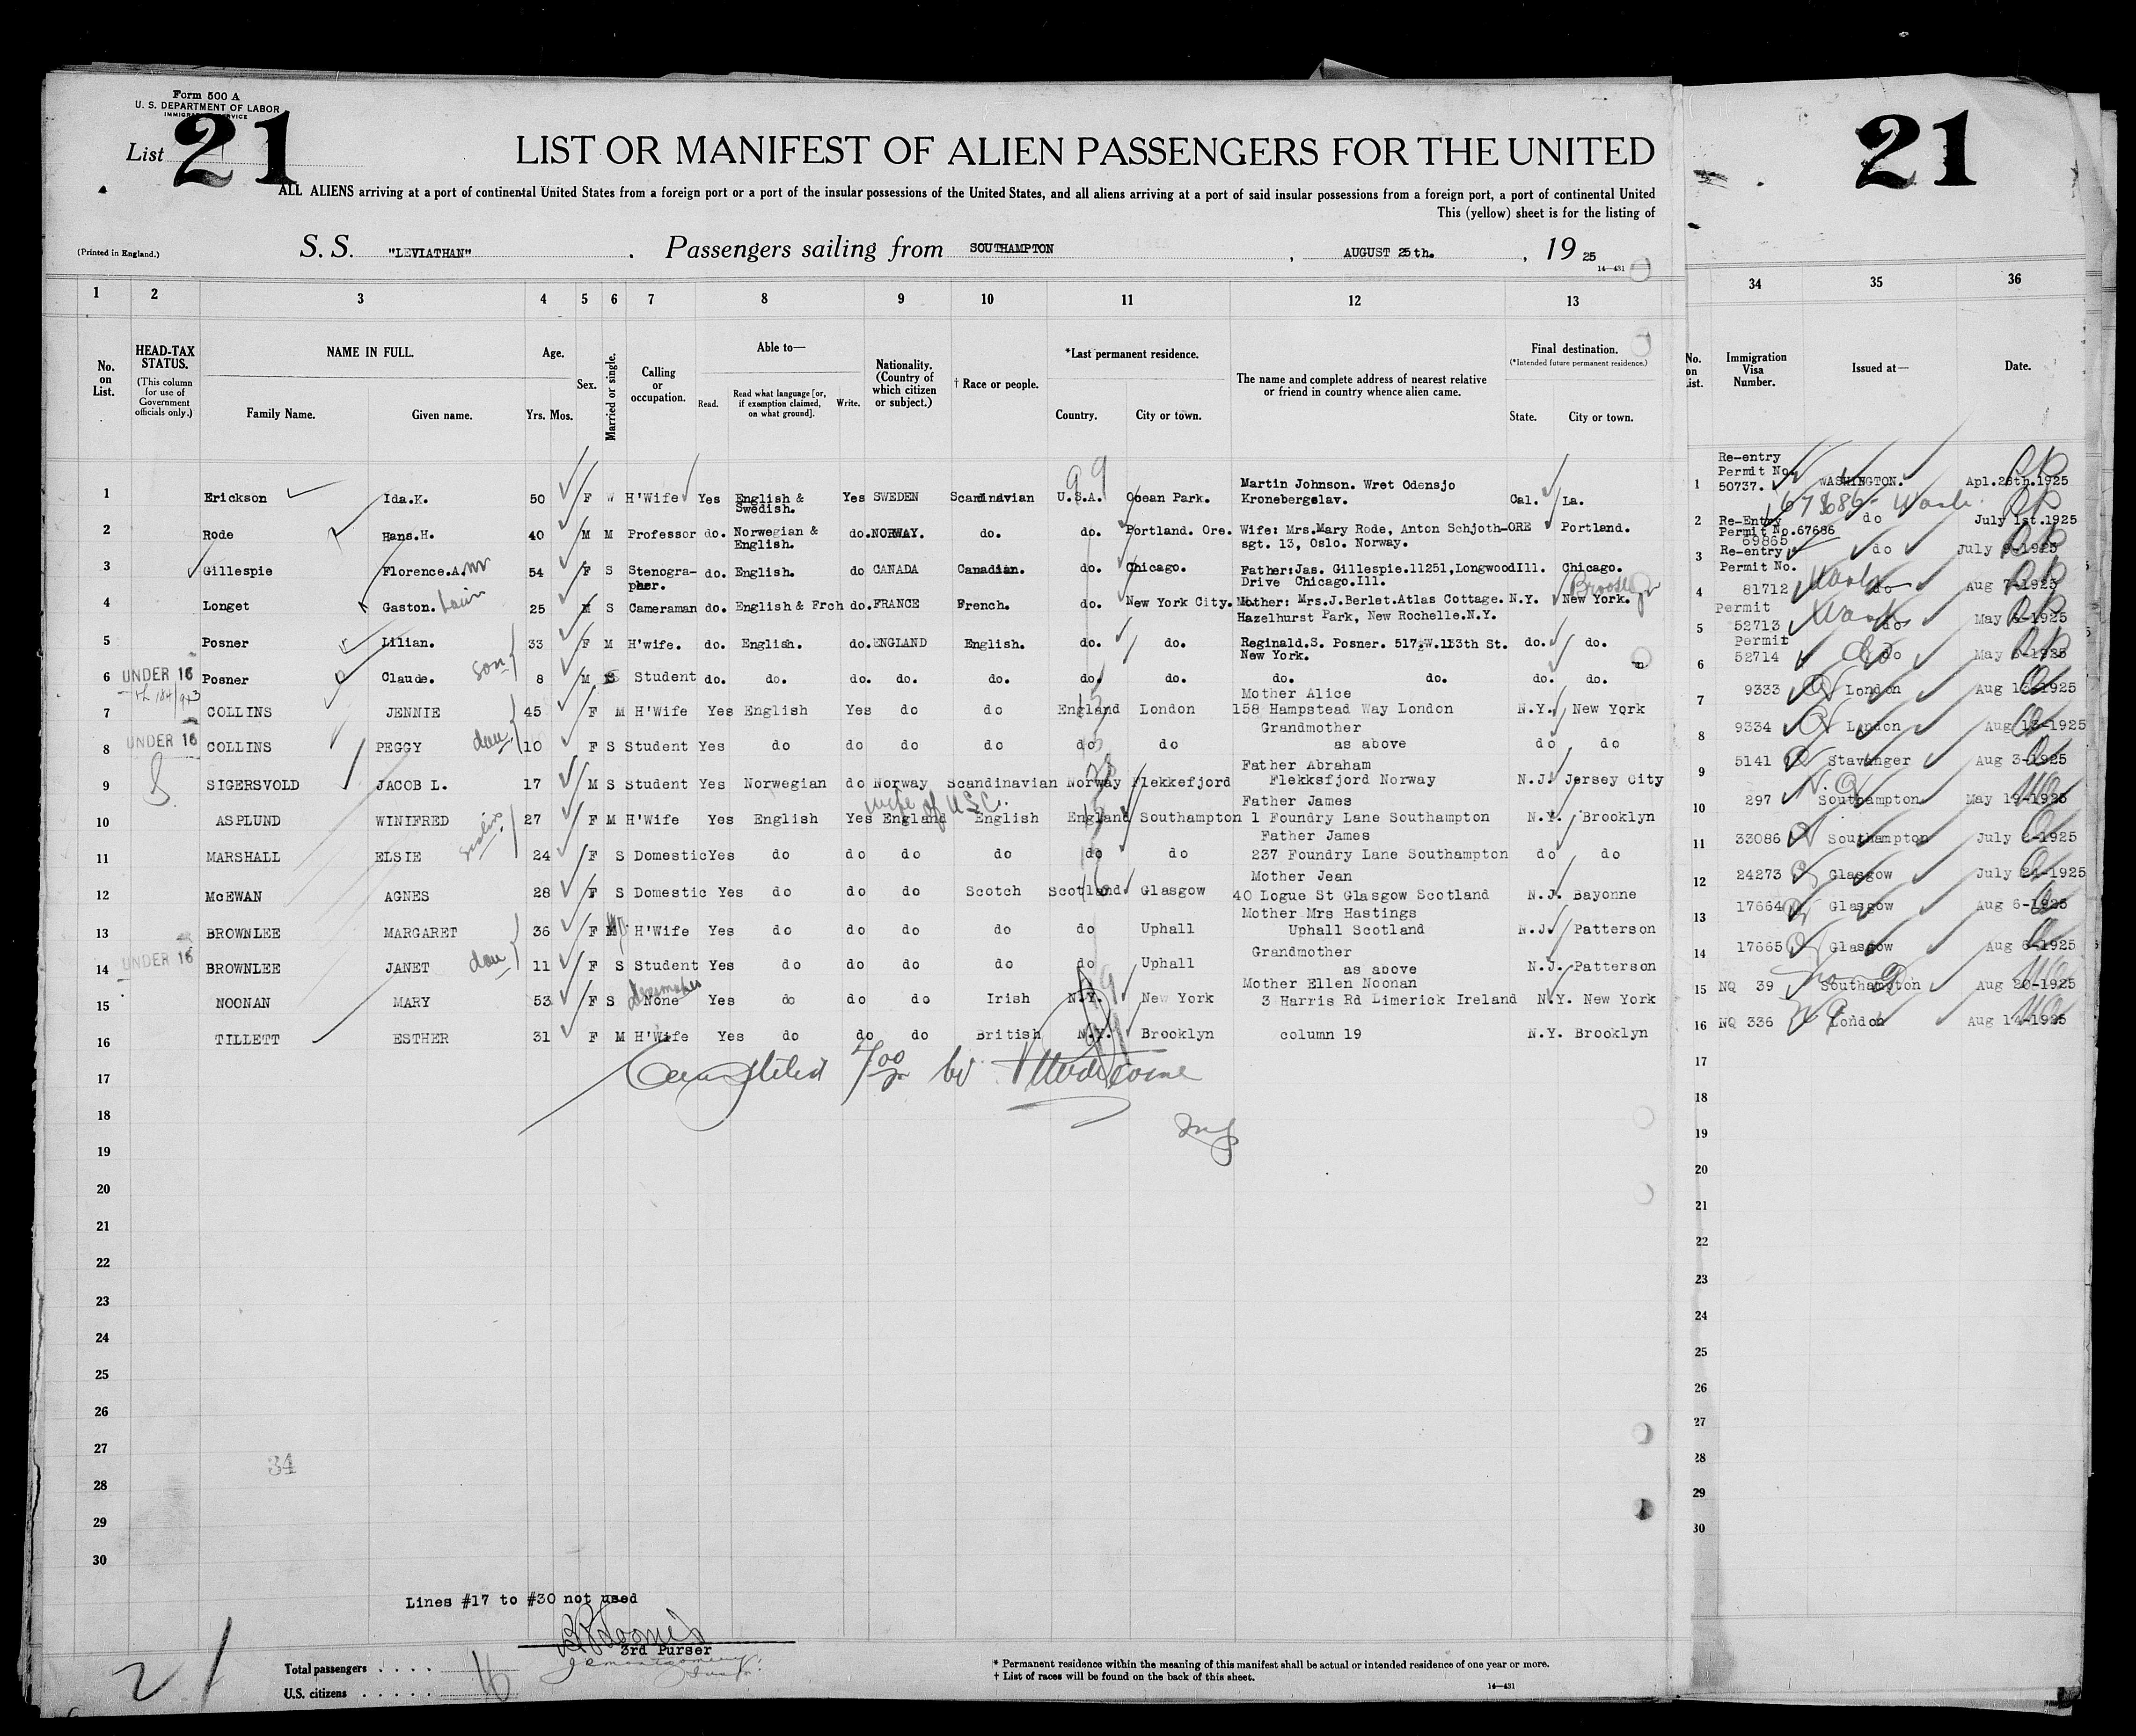 Form 500 A
U. S. DEPARTMENT OF LABOR
IMMIGRATION SERVICE
List 21
21
LIST OR MANIFEST OF ALIEN PASSENGERS FOR THE UNITED
ALL ALIENS arriving at a port of continental United States from a foreign port or a port of the insular possessions of the United States, and all aliens arriving at a port of said insular possessions from a foreign port, a port of continental United
This (yellow) sheet is for the listing of
(Printed in England.)
S. S. "LEVIATHAN" . Passengers sailing from SOUTHAMPTON , AUGUST 25th. , 19 25
14—431
1 2 3 4 5 6 7 8 9 10 11 12 13 34 35 36
No. on List.
HEAD-TAX STATUS.
(This column for use of Government officials only.)
NAME IN FULL.
Family Name. Given name.
Age.
Yrs. Mos.
Sex.
Married or single.
Calling or occupation.
Able to—
Read. Read what language [or, if exemption claimed, on what ground]. Write.
Nationality. (Country of which citizen or subject.)
† Race or people.
*Last permanent residence.
Country. City or town.
The name and complete address of nearest relative or friend in country whence alien came.
Final destination.
(*Intended future permanent residence.)
State. City or town.
No. on List.
Immigration Visa Number.
Issued at—
Date.
1 Erickson Ida.K. 50 F W H'Wife Yes English & Swedish. Yes SWEDEN Scandinavian U.S.A. Ocean Park. Martin Johnson. Wret Odensjo Kronebergslav. Cal. La. 1 Re-entry Permit No. 50737. WASHINGTON. Apl.28th.1925
2 Rode Hans.H. 40 M M Professor do. Norwegian & English. do. NORWAY. do. do. Portland. Ore. Wife: Mrs.Mary Rode, Anton Schjoth-sgt. 13, Oslo. Norway. ORE Portland. 2 Re-Entry Permit No.67686 67686- Wash. do July 1st.1925
3 Gillespie Florence.A. 54 F S Stenogra-pher. do. English. do CANADA Canadian. do. Chicago. Father:Jas. Gillespie.11251,Longwood Drive Chicago.Ill. Ill. Chicago. 3 69865 Re-entry Permit No. do July 9-1925
4 Longet Gaston. 25 M S Cameraman do. English & Frch do. FRANCE French. do. New York City. Mother: Mrs.J.Berlet.Atlas Cottage. Hazelhurst Park, New Rochelle.N.Y. N.Y. New York. Brooklyn 4 81712 do Aug 7-1925
5 Posner Lilian. 33 F M H'wife. do. English. do. ENGLAND English. do. do. Reginald.S. Posner. 517 W.113th St. New York. do. do. 5 Permit 52713 do May 5-1925
UNDER 16
6 Posner Claude. son 8 M S Student do. do. do. do. do. do. do. do. do. do. do. 6 Permit 52714 do May 5-1925
7 COLLINS JENNIE 45 F M H'Wife Yes English Yes do do England London Mother Alice 158 Hampstead Way London N.Y. New York 7 9333 London Aug 13-1925
UNDER 16
8 COLLINS PEGGY dau. 10 F S Student Yes do do do do do do Grandmother as above do do 8 9334 London Aug 13-1925
9 SIGERSVOLD JACOB L. 17 M S Student Yes Norwegian do Norway Scandinavian Norway Flekkefjord Father Abraham Flekksfjord Norway N.J. Jersey City 9 5141 Stavanger Aug 3-1925
wife of U.S.C.
10 ASPLUND WINIFRED 27 F M H'Wife Yes English Yes England English England Southampton Father James 1 Foundry Lane Southampton N.Y. Brooklyn 10 297 Southampton May 19-1925
11 MARSHALL ELSIE 24 F S Domestic Yes do do do do do do Father James 237 Foundry Lane Southampton do do 11 33086 Southampton July 2-1925
12 McEWAN AGNES 28 F S Domestic Yes do do do Scotch Scotland Glasgow Mother Jean 40 Logue St Glasgow Scotland N.J. Bayonne 12 24273 Glasgow July 24-1925
13 BROWNLEE MARGARET 36 F H'Wife Yes do do do do do Uphall Mother Mrs Hastings Uphall Scotland N.J. Patterson 13 17664 Glasgow Aug 6-1925
UNDER 16
14 BROWNLEE JANET dau 11 F S Student Yes do do do do do Uphall Grandmother as above N.J. Patterson 14 17665 Glasgow Aug 6-1925
15 NOONAN MARY 53 F S None Yes do do do Irish N.Y. New York Mother Ellen Noonan 3 Harris Rd Limerick Ireland N.Y. New York 15 NQ 39 Southampton Aug 20-1925
16 TILLETT ESTHER 31 F M H'Wife Yes do do do British N.Y. Brooklyn column 19 N.Y. Brooklyn 16 NQ 336 London Aug 14-1925
17 17
18 18
19 19
20 20
21 21
22 22
23 23
24 24
25 25
26 26
27 27
34
28 28
29 29
30 30
Lines #17 to #30 not used
3rd Purser
21
Total passengers . . . . 16
U.S. citizens . . . . . .
* Permanent residence within the meaning of this manifest shall be actual or intended residence of one year or more.
† List of races will be found on the back of this sheet.
14—431